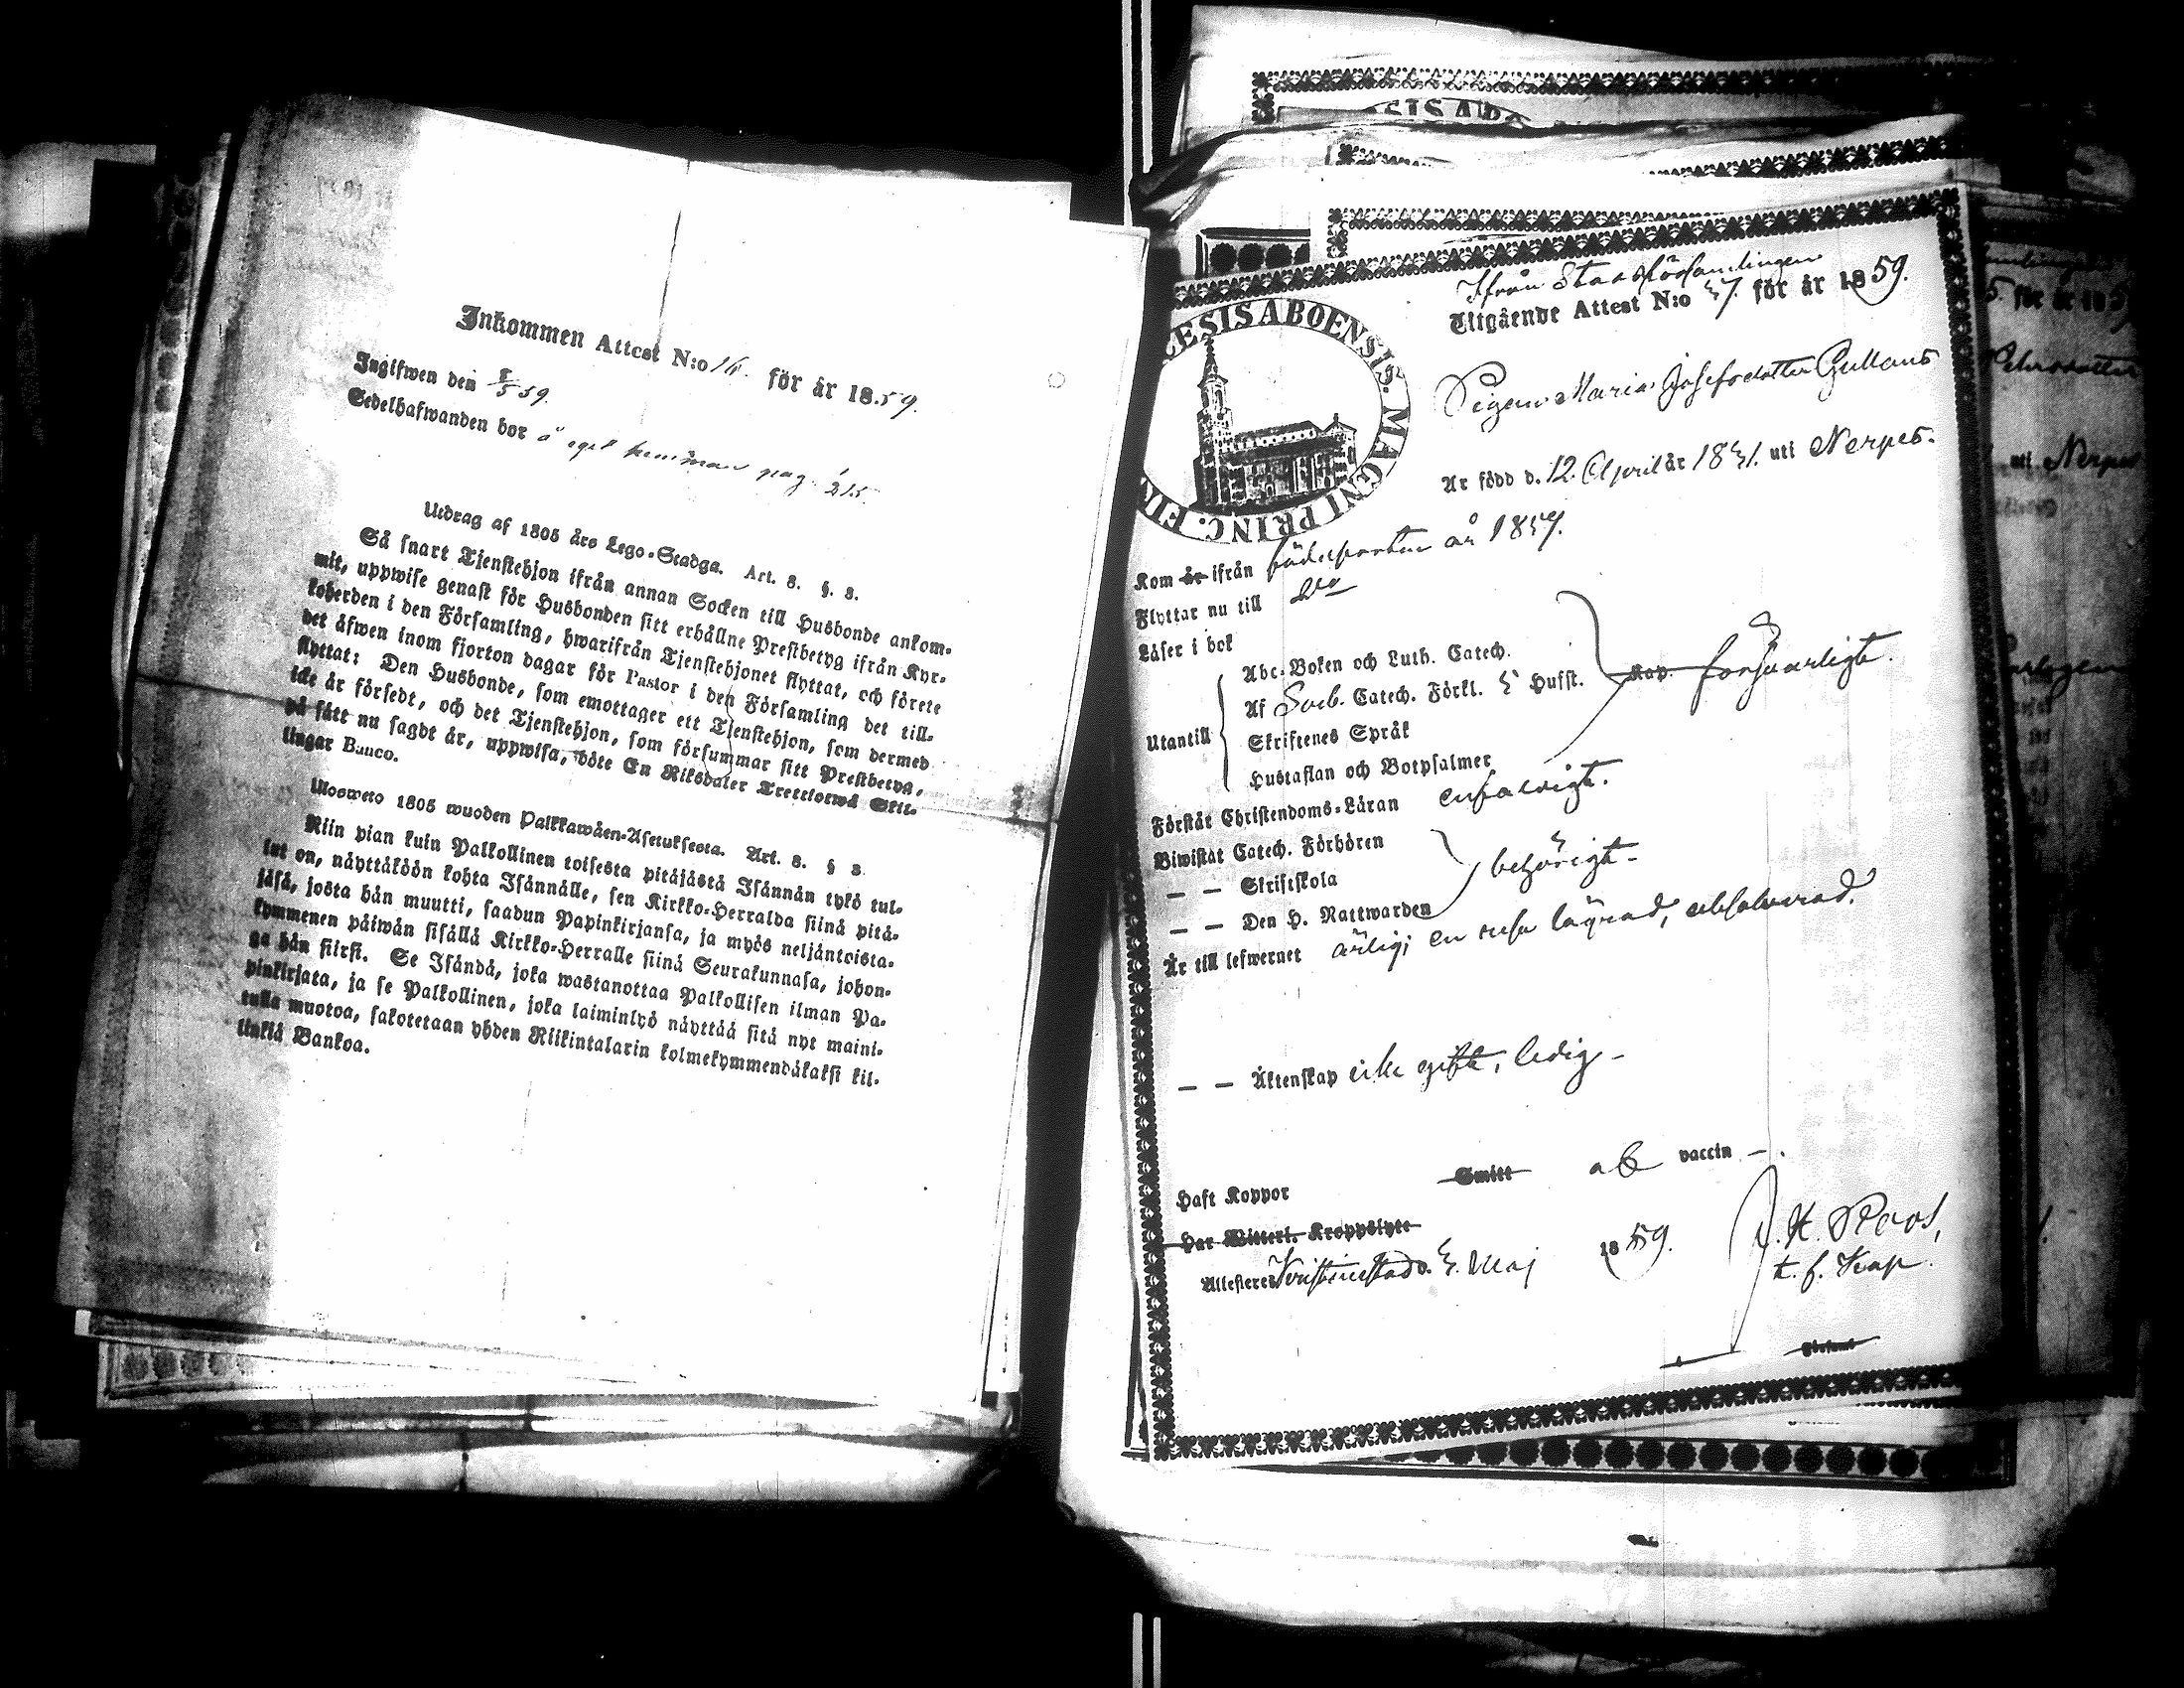 Inkommen Attest N:o 16. för år 1859.
Ingifwen den 8/5 59.
Sedelhafwanden bor å eget hemman pag. 215
Utdrag af 1805 års Lego-Stadga. Art. 8. §. 8.
Så snart Tjenstehjon ifrån annan Socken till Husbonde ankom-
mit, uppwise genast för Husbonden sitt erhållne Prestbetyg ifrån Kyr-
koherden i den Församling, hwarifrån Tjenstehjonet flyttat, och förete
det äfwen inom fjorton dagar för Pastor i den Församling det till-
flyttat: Den Husbonde, som emottager ett Tjenstehjon, som dermed
icke är försedt, och det Tjenstehjon, som försummar sitt Prestbetyg,
på sätt nu sagdt är, uppwisa, böte En Riksdaler Trettiotwå Skil-
lingar Banco.
Ulosweto 1805 wuoden Palkkawäen-Asetuksesta. Art. 8. § 8.
Niin pian kuin Palkollinen toisesta pitäjästä Isännän tykö tul-
lut on, näyttäköön kohta Isännälle, sen Kirkko-Herralda siinä pitä-
jäsä, josta hän muutti, saadun Papinkirjansa, ja myös neljäntoista-
kymmenen päiwän sisällä Kirkko-Herralle siinä Seurakunnasa, johon-
ga hän siirsi. Se Isändä, joka wastanottaa Palkollisen ilman Pa-
pinkirjata, ja se Palkollinen, joka laiminlyö näyttää sitä nyt maini-
tulla muotoa, sakotetaan yhden Riikintalarin kolmekymmendäkaksi kil-
linkiä Bankoa.
SIS ABO
Ifrån Stadsförsamlingen
Utgående Attest N:o 57. för år 1859.
CESIS ABOENSIS. MAGNI PRINC. FIN
Pigan Maria Josefsdotter Gullans
Är född d. 12. April år 1831. uti Nerpes.
Kom år ifrån födelseorten år 1857.
Flyttar nu till do
Läser i bok
Utantill
Abc-Boken och Luth. Catech.
Af Sveb. Catech. Förkl. 5 Hufst.
Skriftenes Språk
Hustaflan och Botpsalmer
Kap. försvarligt.
Förstår Christendoms-Läran enfaldigt.
Biwistat Catech. Förhören
— — Skriftskola
— — Den H. Nattwarden
behörigt -
Är till lefwernet ärlig; en resa lägrad, absolverad.
— — Äktenskap icke gift, ledig -
Haft Koppor Smitt ab vaccin —.
Har Witterl. Kroppslyte
Attesteres Kristinestad d. 5. Maj 1859.
J. H. Roos,
t. f. Kap.